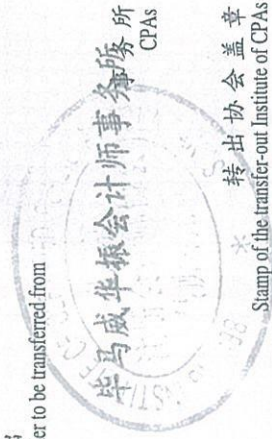 er to be transferred from
毕马威华振会计师事务所
事务所
CPAs
转出协会盖章
Stamp of the transfer-out Institute of CPAs